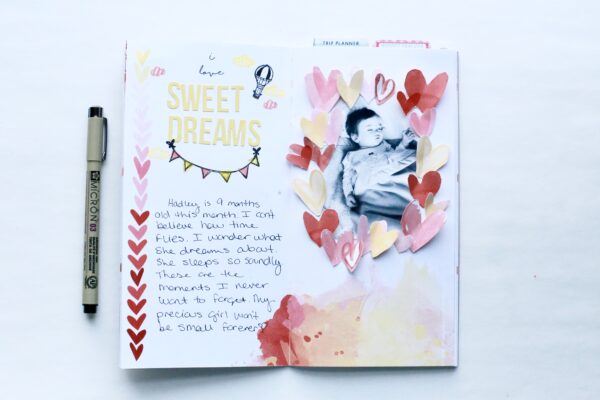 i
love
SWEET
DREAMS
Hadley is 9 months
old this month. I can't
believe how time
flies. I wonder what
she dreams about.
She sleeps so soundly.
These are the
moments I never
want to forget. My
precious girl won't
be small forever.
TRIP PLANNER
MICRON 03